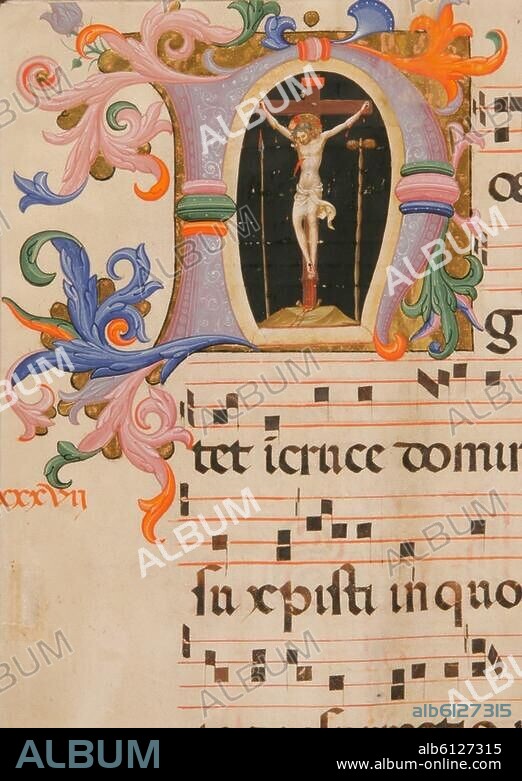 N
g
tet icruce domin
xxxvıȷ
su xpisti in quo
ALBUM
alb6127315
ALBUM
alb6127315
www.album-online.com